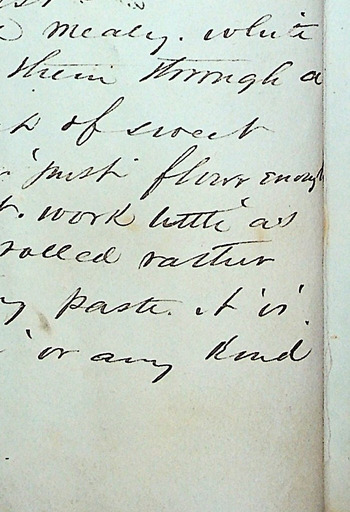 mealy. white
them through a
of sweet
just flour enough
work little as
rolled rather
paste. it is
or any kind